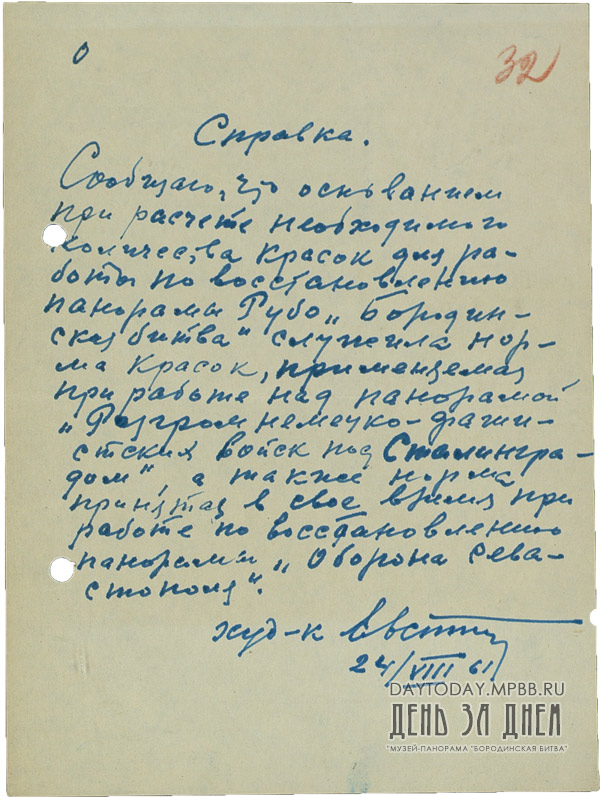 32
Справка.
Сообщаю, что основанием
при расчете необходимого
количества красок для ра-
боты по восстановлению
панорамы Рубо „Бородин-
ская битва" служила нор-
ма красок, применяемая
при работе над панорамой
„Разгром немецко-фаши-
стских войск под Сталингра-
дом", а также норма
принятая в свое время при
работе по восстановлению
панорамы „Оборона Сева-
стополя".
худ-к
24/VIII 61
DAYTODAY.MPBB.RU
ДЕНЬ ЗА ДНЕМ
"МУЗЕЙ-ПАНОРАМА "БОРОДИНСКАЯ БИТВА"